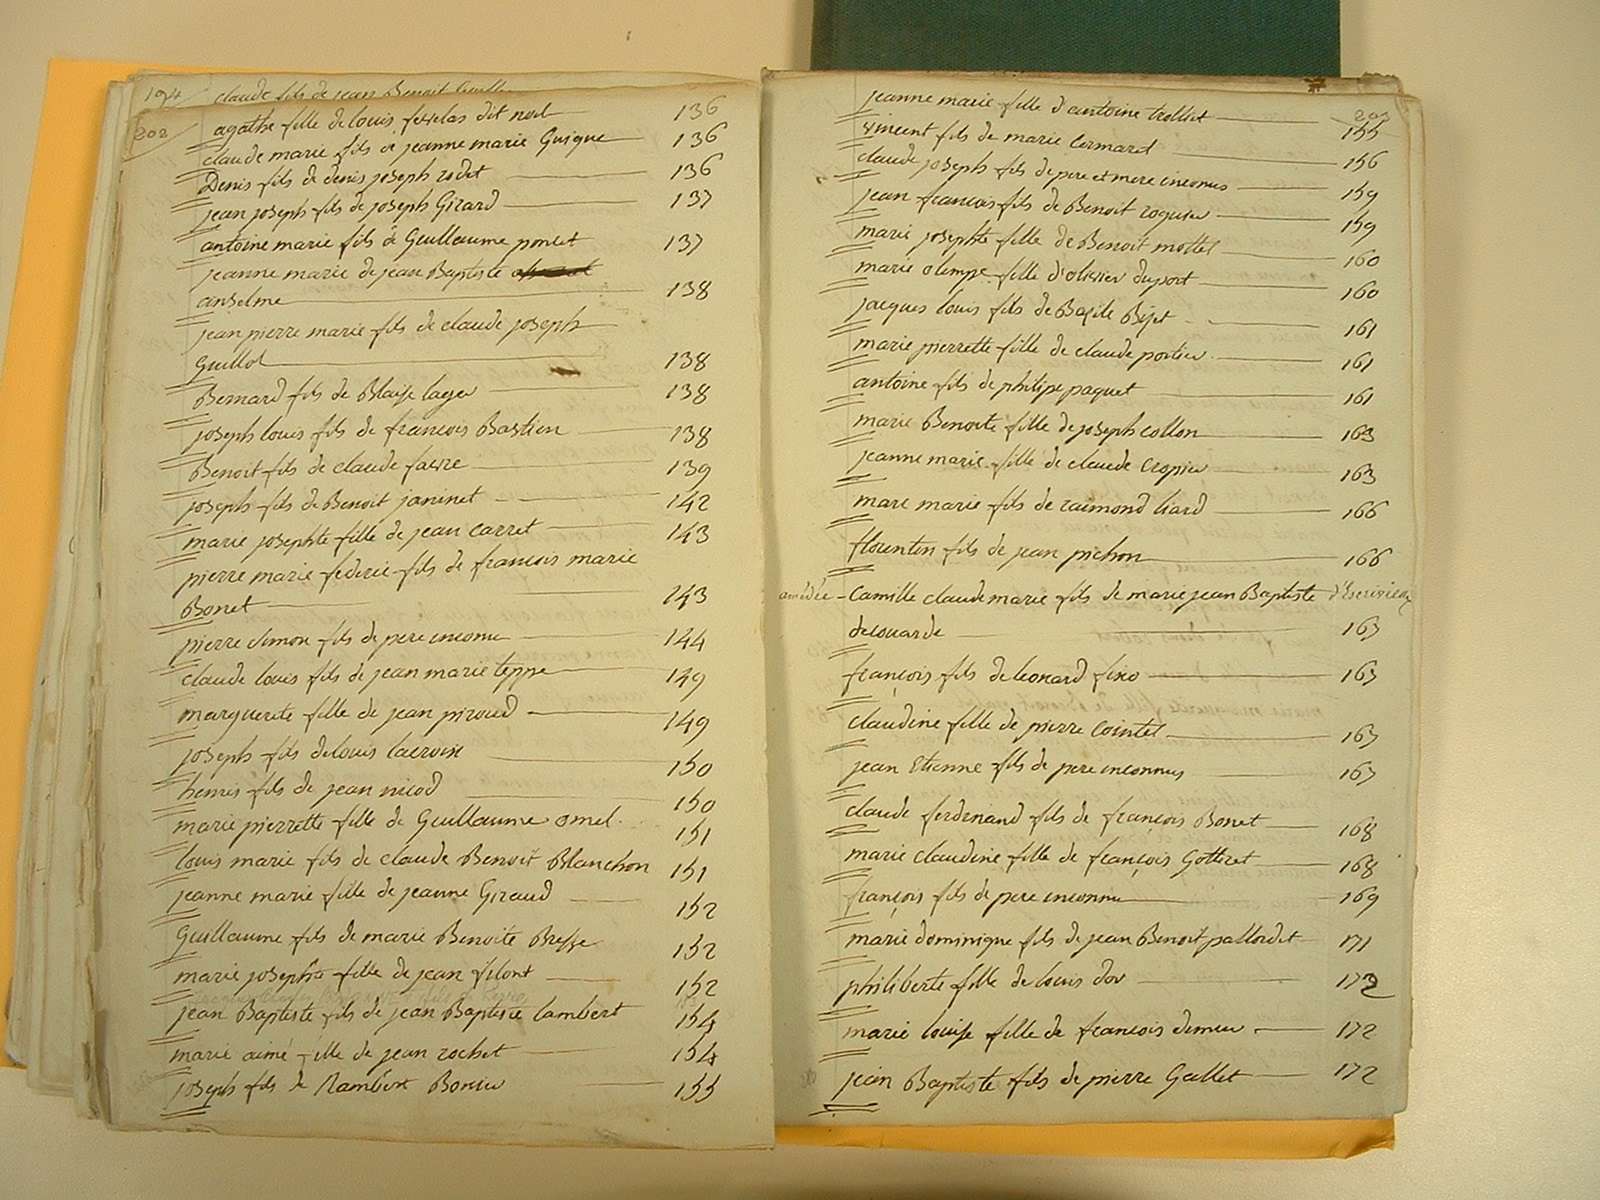 194 claude fils de jean Benoit
202
agathe fille de louis dit noel 136
claude marie fils de jeanne marie Guigue 136
Denis fils de denis joseph rodet 136
jean joseph fils de joseph Girard 137
antoine marie fils de Guillaume poncet 137
jeanne marie de jean Baptiste
anselme 138
jean pierre marie fils de claude joseph
Guillot 138
Bernard fils de Blaise lager 138
joseph louis fils de francois Bastien 138
Benoit fils de claude favre 139
joseph fils de Benoit janinet 142
marie josephte fille de jean carret 143
pierre marie federic fils de francois marie
Bonet 143
pierre simon fils de pere inconu 144
claude louis fils de jean marie teppe 149
marguerite fille de jean piroud 149
joseph fils de louis lacroix 150
henris fils de jean nicod 150
marie pierrette fille de Guillaume omel 151
louis marie fils de claude Benoit Blanchon 151
jeanne marie fille de jeanne Giraud 152
Guillaume fils de marie Benoite Bresse 152
marie josephte fille de jean filont 152
jean Baptiste fils de jean Baptiste lambert 154
marie aimé fille de jean rochet 154
joseph fils de Rambert Bonier 155
jeanne marie fille d'antoine trolliet 155
vincent fils de marie Cermaret 156
claude joseph fils de pere et mere inconus 159
jean francois fils de Benoit roguier 159
marie josephte fille de Benoit mottet 160
marie olimpe fille d'olivier duport 160
jacques louis fils de Basile Bijet 161
marie pierrette fille de claude portier 161
antoine fils de philipe paquet 161
marie Benoite fille de joseph collon 163
jeanne marie fille de claude cropier 163
marc marie fils de raimond liard 166
florentin fils de jean pichon 166
amédée Camille claude marie fils de marie jean Baptiste
delouarde 163
françois fils de leonard fixo 163
claudine fille de pierre Cointet 163
jean Etienne fils de pere inconnus 163
claude ferdinand fils de françois Bonet 168
marie claudine fille de françois Gotteret 168
françois fils de pere inconnu 169
marie dominique fils de jean Benoit pallordet 171
philiberte fille de louis dor 172
marie louise fille de françois dimier 172
jean Baptiste fils de pierre Gallet 172